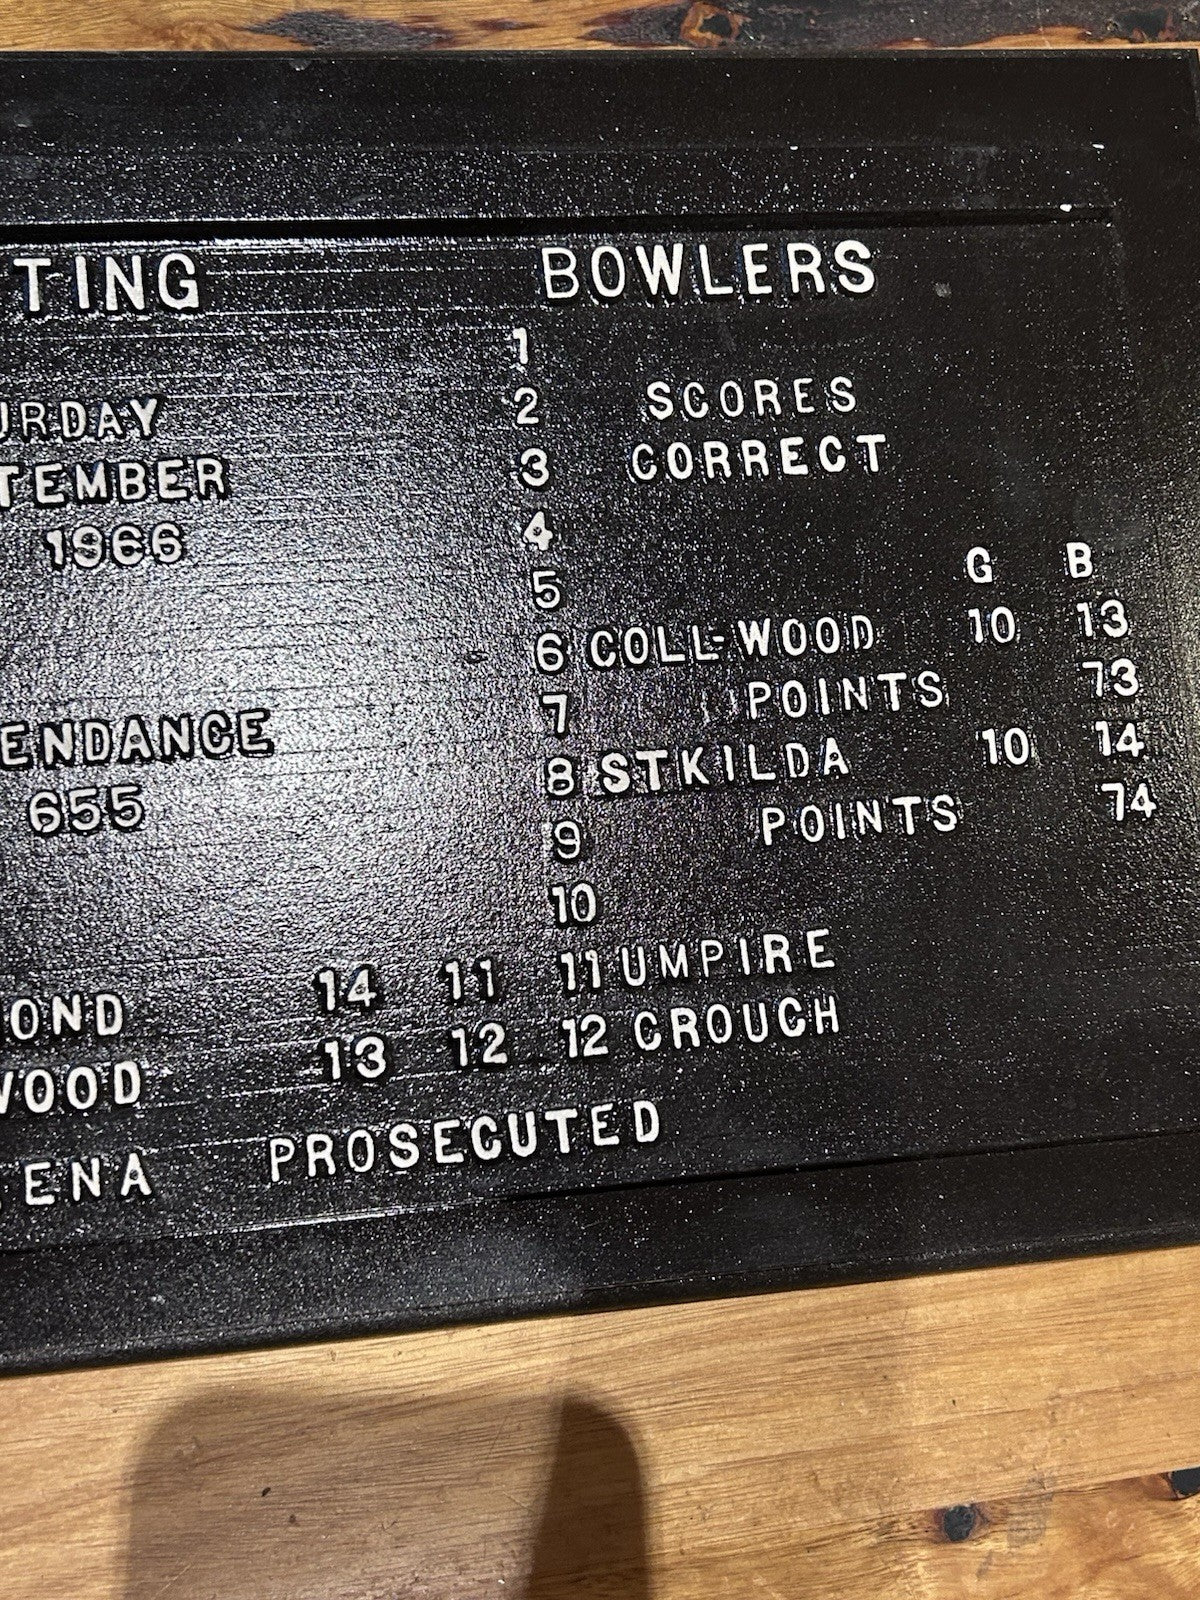 TING BOWLERS
1
URDAY 2 SCORES
TEMBER 3 CORRECT
1966 4
G B
5
6 COLL-WOOD 10 13
7 POINTS 73
ENDANCE 8 STKILDA 10 14
655 9 POINTS 74
10
OND 14 11 11 UMPIRE
WOOD 13 12 12 CROUCH
ENA PROSECUTED